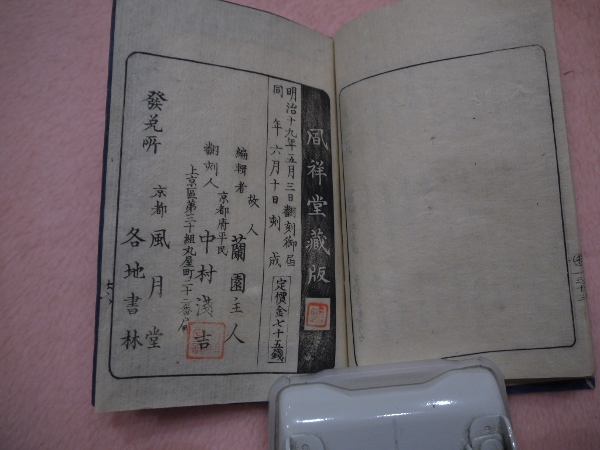 風祥堂藏版
明治十九年五月三日翻刻御届
同年六月十日刻成
定價金七十五錢
編輯者 故人 蘭園主人
京都府平民
翻刻人 中村淺吉
上京區第三十組丸屋町二十二番戸
發兌所 京都 風月堂
各地書林